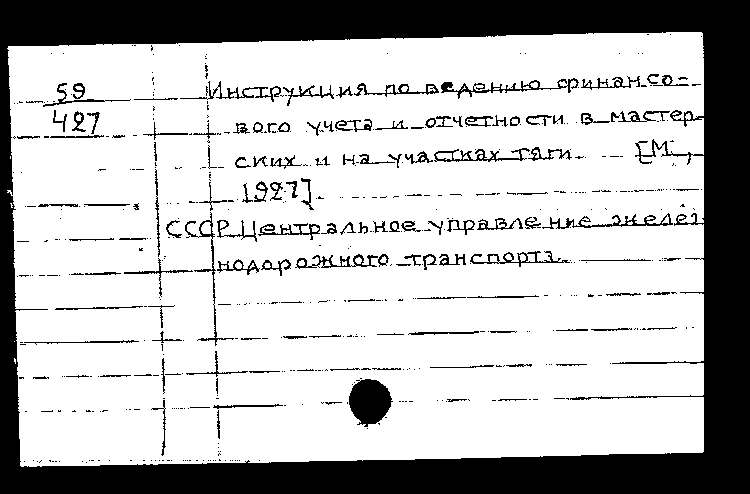 59
427
Инструкция по ведению финансо-
вого учета и отчетности в мастер-
ских и на участках тяги. [М.,
1927].
СССР. Центральное управление желез-
нодорожного транспорта.